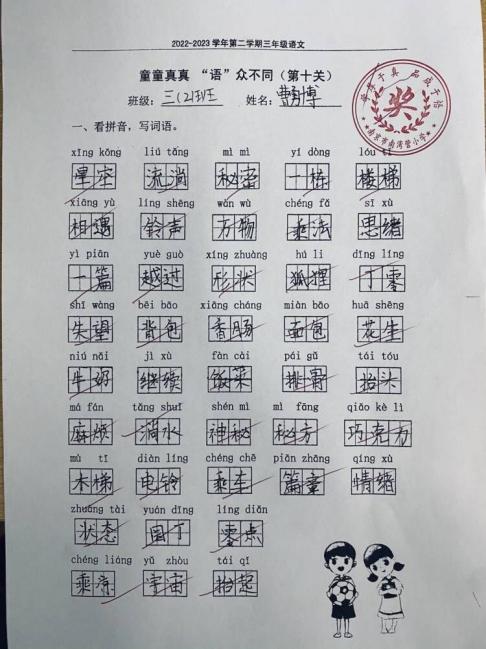 2022-2023学年第二学期三年级语文
童童真真 “语”众不同（第十关）
班级：三(2)班 姓名：曹博
一、看拼音，写词语。
xīng kōng liú tǎng mì mì yí dòng lóu tī
星空 流淌 秘密 一栋 楼梯
xiāng yù líng shēng wǎn wù chéng fǎ sī xù
相遇 铃声 万物 乘法 思绪
yì piān yuè guò xíng zhuàng hú li dīng líng
一篇 越过 形状 狐狸 丁零
shī wàng bēi bāo xiāng cháng miàn bāo huā shēng
失望 背包 香肠 面包 花生
niú nǎi jì xù fàn cài pái gǔ tái tóu
牛奶 继续 饭菜 排骨 抬头
má fán tǎng shuǐ shén mì mì fāng qiǎo kè lì
麻烦 淌水 神秘 秘方 巧克力
mù tī diàn líng chéng chē piān zhāng qíng xù
木梯 电铃 乘车 篇章 情绪
zhuàng tài yuán dīng líng diǎn
状态 园丁 零点
chéng liáng yǔ zhòu tái qǐ
乘凉 宇宙 抬起
奖
南京市南湾营小学